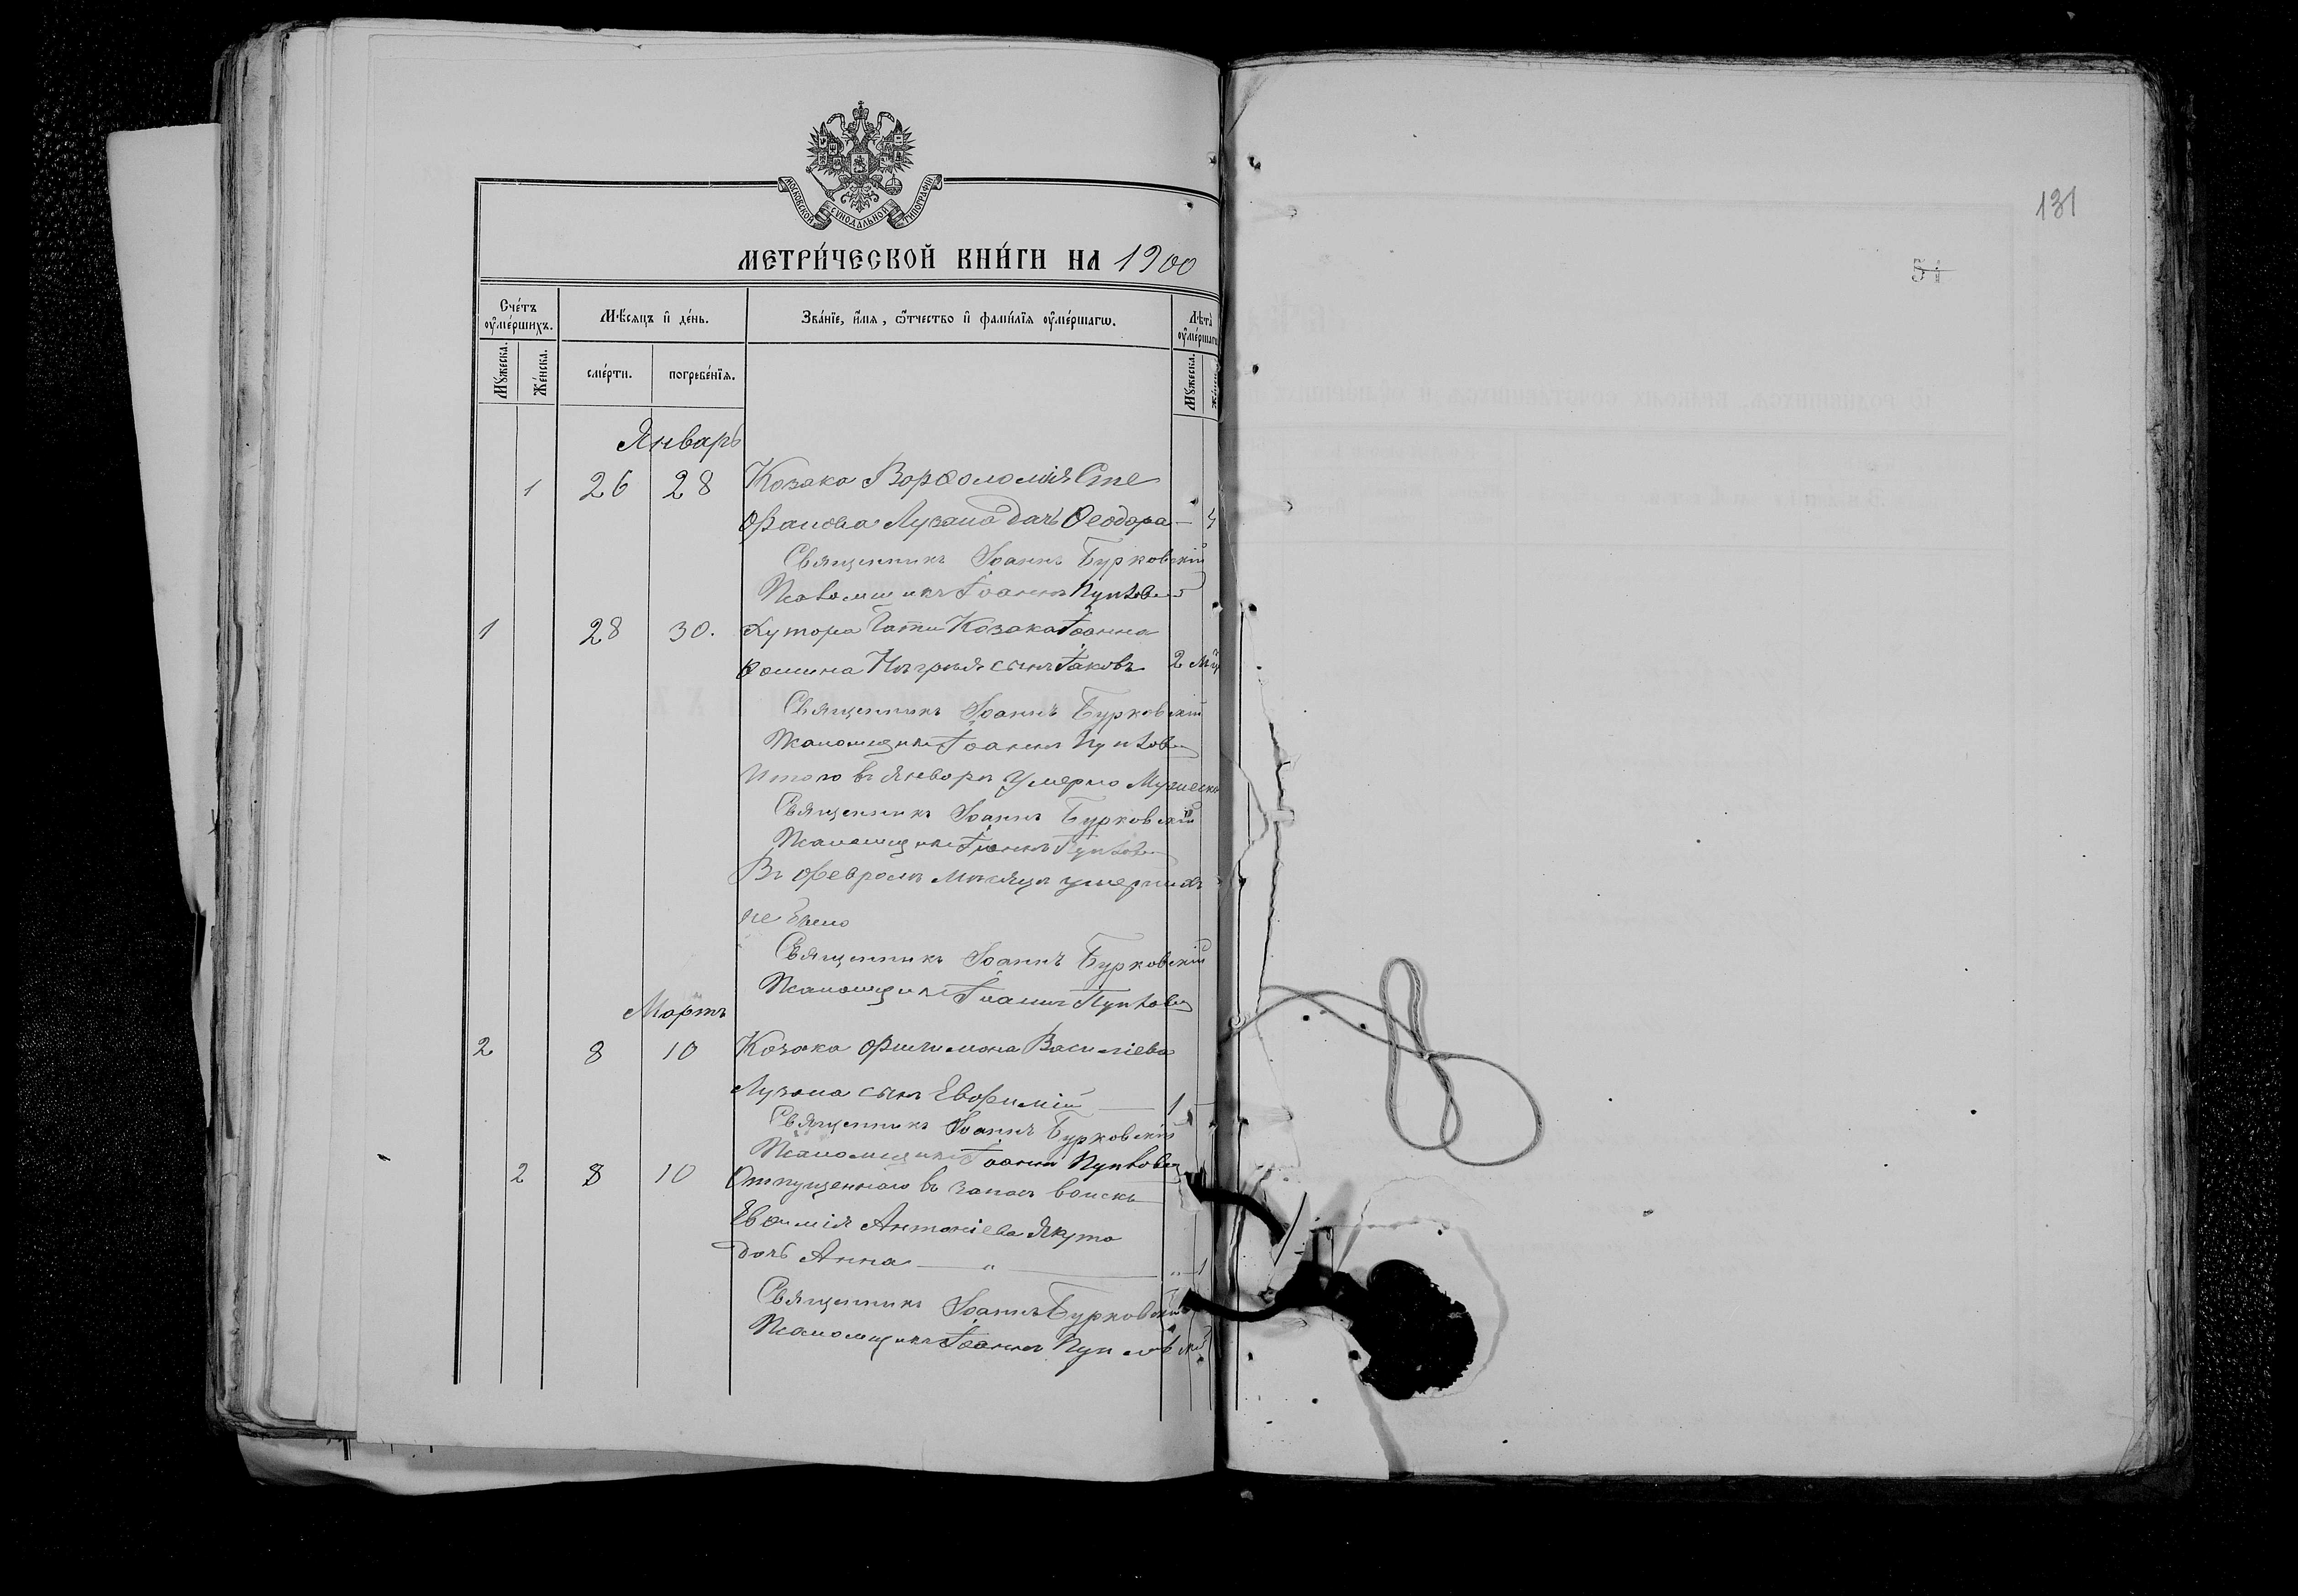 МОСКОВСКОЙ СѴНОДАЛЬНОЙ ТИПОГРАФІИ
МЕТРИ́ЧЕСКОЙ КНИ́ГИ НА 1900
Сче́тъ оу҆ме́ршихъ.
Мѣ́сяцъ и҆ де́нь.
Зва́нїе, и҆́мя, ѻ҆́тчество и҆ фами́лїя оу҆ме́ршагѡ.
Лѣ́та оу҆ме́ршагѡ
Мꙋ́жеска.
Же́нска.
сме́рти.
погребе́нїя.
Мꙋ́жеска.
Январь
1 26 28 Козака Варѳоломія Сте
фанова Лузана дочь Ѳеодора — 4
Священникъ Іоаннъ Бурковскій
Псаломщикъ Іоаннъ
1 28 30. Хутора Гати Козака Іоанна
Ѳомина сынъ Іаковъ 2 м
Священникъ Іоаннъ Бурковскій
Псаломщикъ Іоаннъ
Итого въ Январѣ умерло Мужеска
Священникъ Іоаннъ Бурковскій
Псаломщикъ Іоаннъ
Въ Февралѣ мѣсяцѣ умершихъ
не было
Священникъ Іоаннъ Бурковскій
Псаломщикъ Іоаннъ
Мартъ
2 8 10 Козака Филимона Василіева
Лузана сынъ Евфимій — 1 —
Священникъ Іоаннъ Бурковскій
Псаломщикъ Іоаннъ
2 8 10 Отпущеннаго въ запасъ войскъ
Евѳимія Антоніева Якута
дочь Анна — „ — „ 1
Священникъ Іоаннъ Бурковскій
Псаломщикъ Іоаннъ
131
51